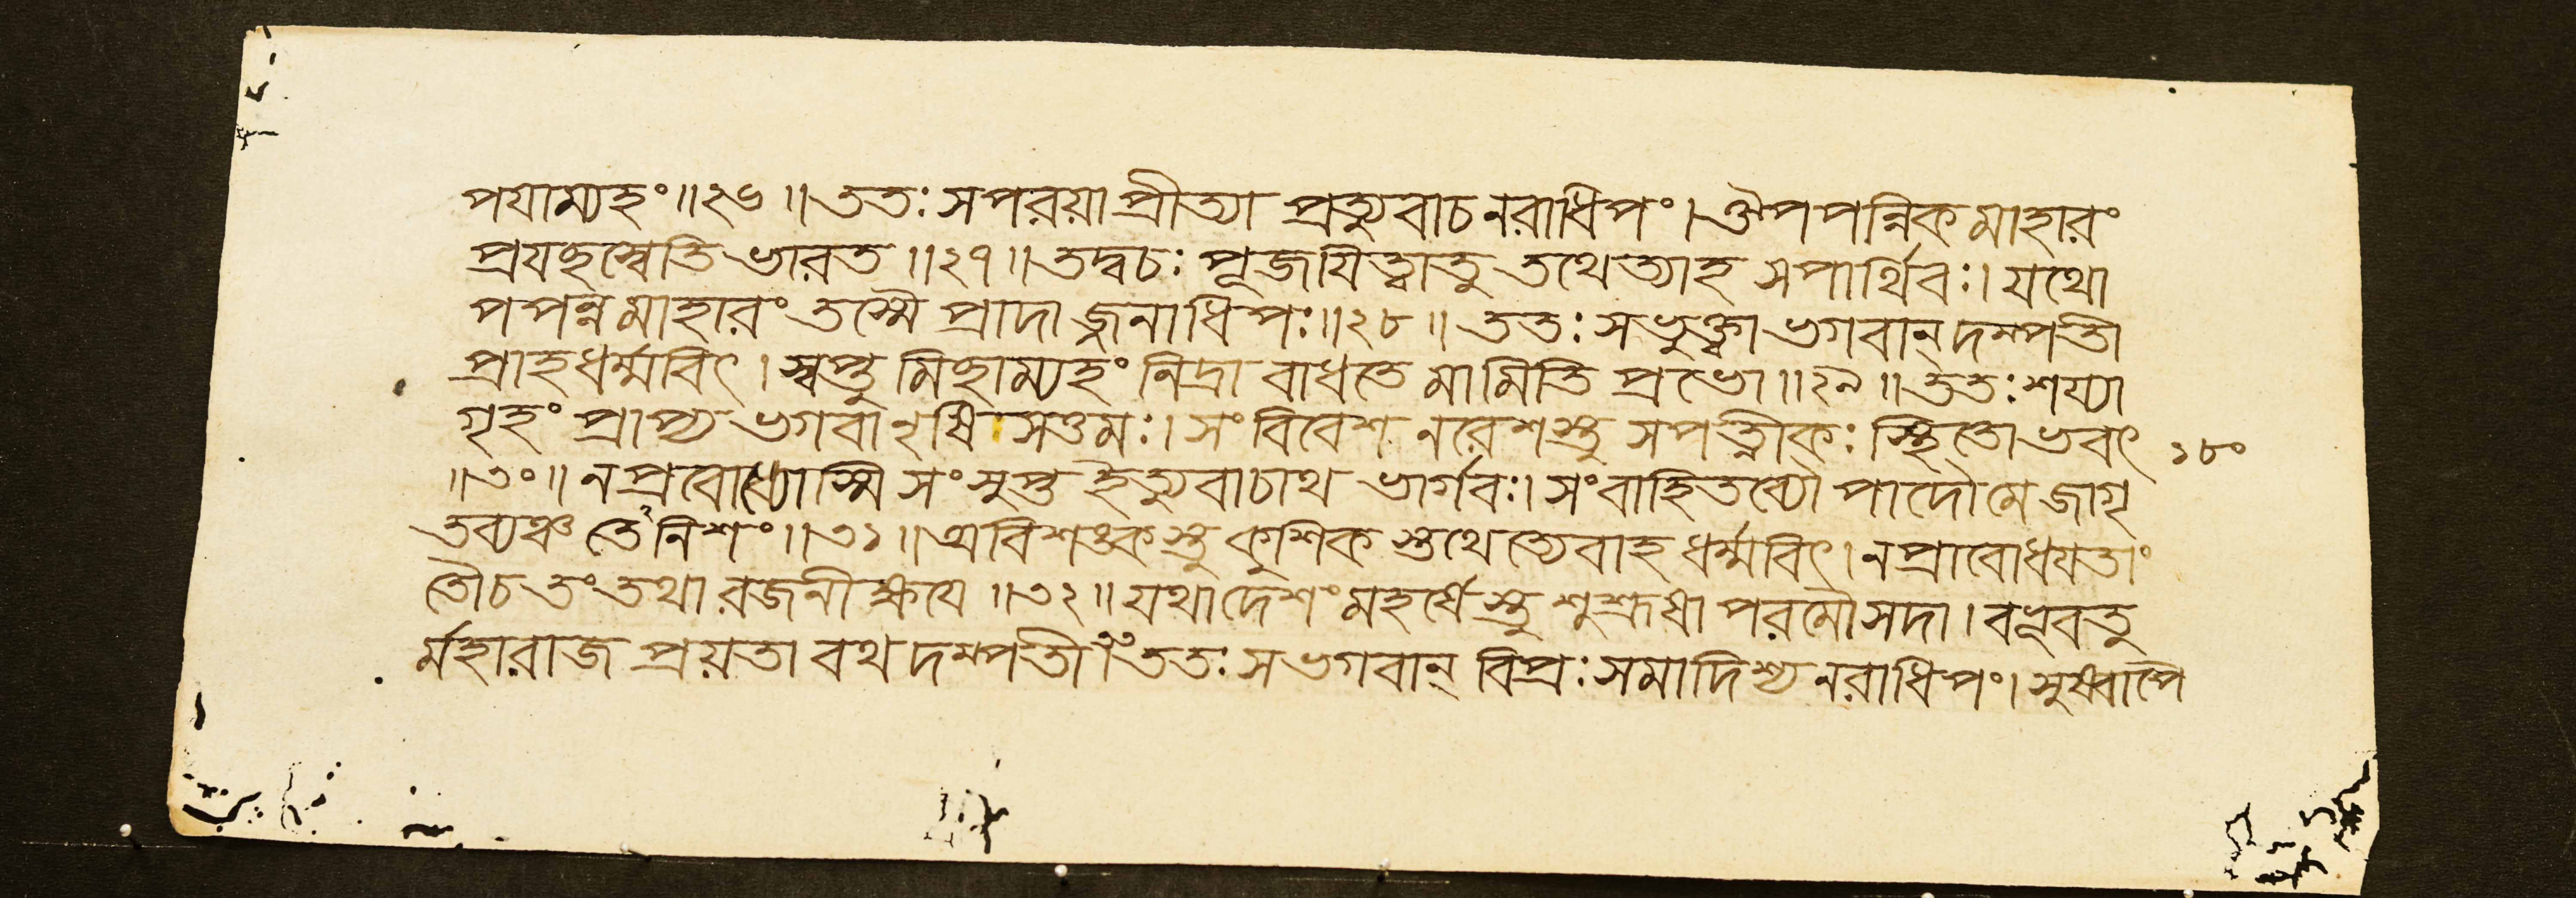 পযাম্যহং॥২৬॥ততঃসপরয়াপ্রীত্যা প্রত্যুবাচনরাধিপং।ঔপপন্নিকমাহারং
প্রযচ্ছস্বেতিভারত॥২৭॥তদ্বচঃ পূজযিত্বাতু তথেত্যাহ সপার্থিবঃ। যথো
পপন্নমাহারং তস্মৈ প্রাদাজ্জনাধিপঃ॥২৮॥ ততঃ সভুক্ত্বা ভগবান্ দম্পতী
প্রাহধর্ম্মবিৎ। স্বপ্তুমিচ্ছাম্যহং নিদ্রা বাধতে মামিতি প্রভো॥২৯॥ততঃশয্যা
গৃহং প্রাপ্য ভগবানৃষিসত্তমঃ।সংবিবেশ নরেশস্তু সপত্নীকঃ স্থিতোভবৎ ১৮০
॥৩০॥নপ্রবোধ্যোস্মি সংসুপ্ত ইত্যুবাচাথ ভার্গবঃ।সংবাহিতব্যৌ পাদৌমে জাগৃ
তব্যঞ্চ তেঽনিশং॥৩১॥অবিশঙ্কস্তু কুশিকস্তথেত্যেবাহ ধর্ম্মবিৎ।নপ্রাবোধযতাং
তৌচ তংতথা রজনীক্ষযে॥৩২॥যথাদেশং মহর্ষেস্তু শুশ্রূষা পরমৌসদা। বভূবতু
র্মহারাজ প্রয়তাবথদম্পতী৺ততঃ সভগবান্ বিপ্রঃসমাদিশ্য নরাধিপং।সুষ্বাপৈ